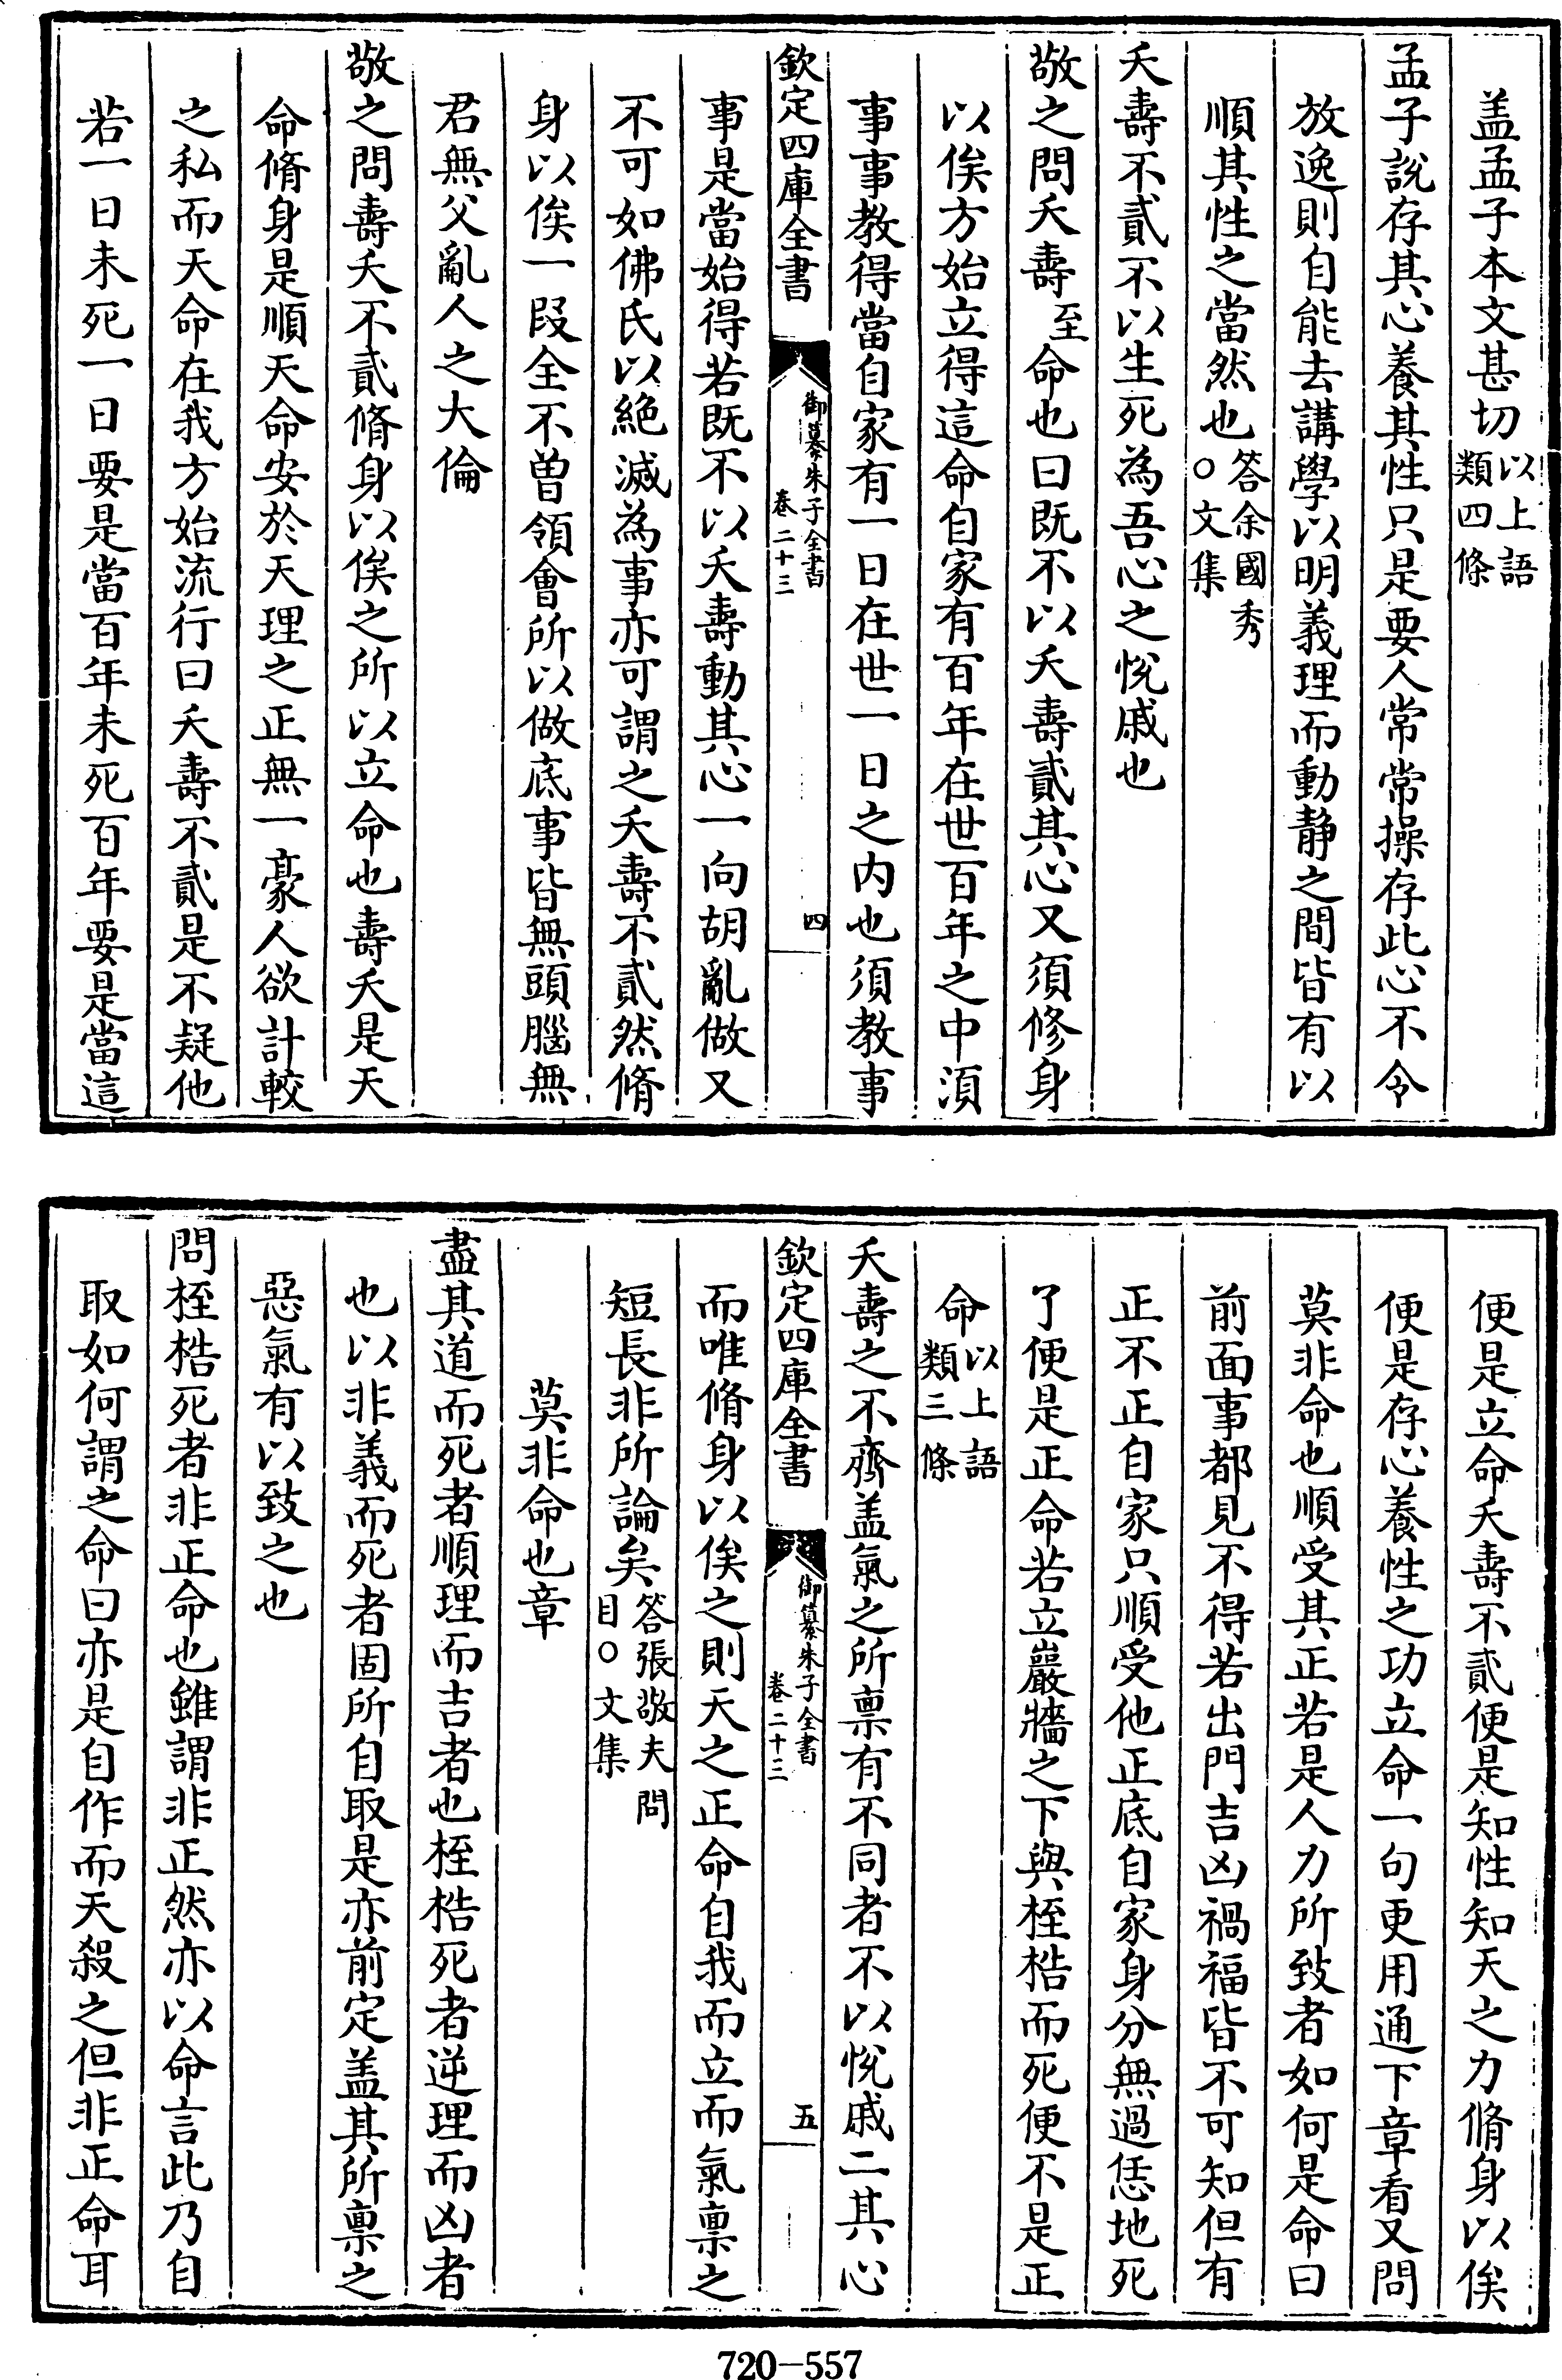 盖孟子本文甚切以上語類四條
孟子說存其心養其性只是要人常常操存此心不令
放逸則自能去講學以明義理而動静之間皆有以
順其性之當然也答余國秀○文集
夭壽不貳不以生死為吾心之悅戚也
敬之問夭壽至命也曰既不以夭壽貳其心又須修身
以俟方始立得這命自家有百年在世百年之中湏
事事教得當自家有一日在世一日之内也須教事
欽定四庫全書
御纂朱子全書
卷二十三
四
事是當始得若既不以夭壽動其心一向胡亂做又
不可如佛氏以絶滅為事亦可謂之夭壽不貳然脩
身以俟一段全不曽領會所以做底事皆無頭腦無
君無父亂人之大倫
敬之問壽夭不貳脩身以俟之所以立命也壽夭是天
命脩身是順天命安於天理之正無一豪人欲計較
之私而天命在我方始流行曰夭壽不貳是不疑他
若一日未死一日要是當百年未死百年要是當這
便是立命夭壽不貳便是知性知天之力脩身以俟
便是存心養性之功立命一句更用通下章看又問
莫非命也順受其正若是人力所致者如何是命曰
前面事都見不得若出門吉凶禍福皆不可知但有
正不正自家只順受他正底自家身分無過恁地死
了便是正命若立巖牆之下與桎梏而死便不是正
命以上語類三條
夭壽之不齊盖氣之所禀有不同者不以悅戚二其心
欽定四庫全書
御纂朱子全書
卷二十三
五
而唯脩身以俟之則天之正命自我而立而氣禀之
短長非所論矣答張敬夫問目○文集
莫非命也章
盡其道而死者順理而吉者也桎梏死者逆理而凶者
也以非義而死者固所自取是亦前定盖其所禀之
惡氣有以致之也
問桎梏死者非正命也雖謂非正然亦以命言此乃自
取如何謂之命曰亦是自作而天殺之但非正命耳
720-557